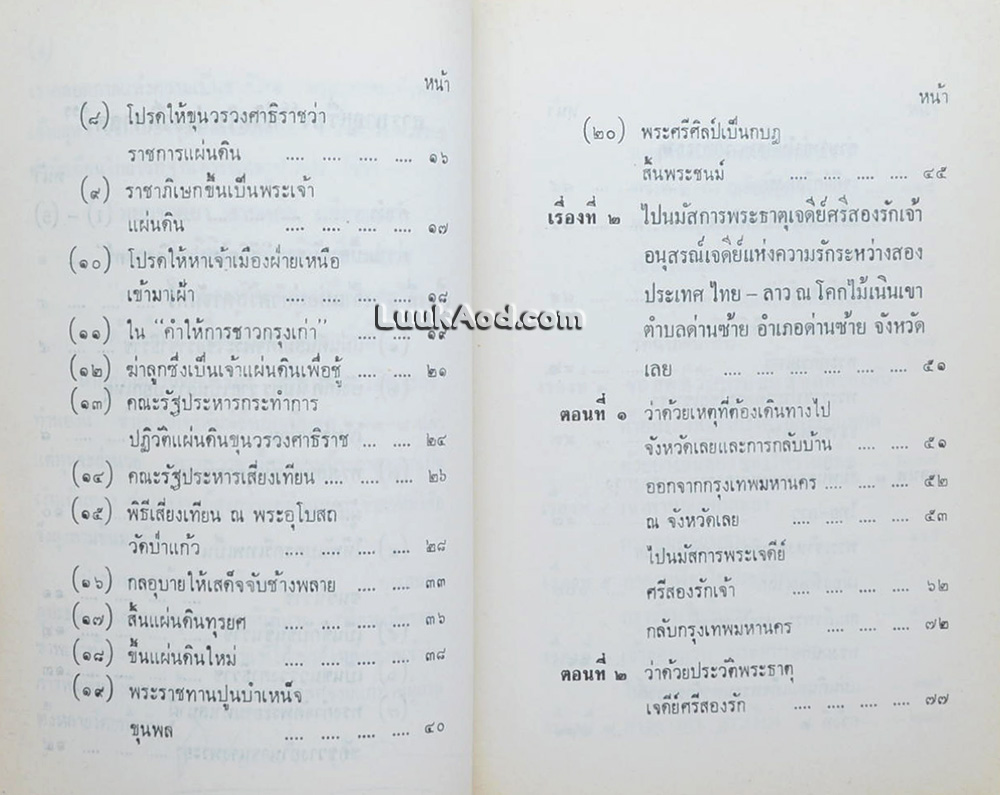 หน้า
(๘) โปรดให้ขุนวรวงศาธิราชว่า
ราชการแผ่นดิน .... .... .... .... ๑๖
(๙) ราชาภิเษกขึ้นเป็นพระเจ้า
แผ่นดิน .... .... .... .... ๑๗
(๑๐) โปรดให้หาเจ้าเมืองฝ่ายเหนือ
เข้ามาเฝ้า .... .... .... .... ๑๘
(๑๑) ใน “คำให้การชาวกรุงเก่า” .... .... ๑๙
(๑๒) ฆ่าลูกซึ่งเป็นเจ้าแผ่นดินเพื่อชู้ .... .... ๒๑
(๑๓) คณะรัฐประหารกระทำการ
ปฏิวัติแผ่นดินขุนวรวงศาธิราช .... .... ๒๔
(๑๔) คณะรัฐประหารเสี่ยงเทียน .... .... .... ๒๖
(๑๕) พิธีเสี่ยงเทียน ณ พระอุโบสถ
วัดป่าแก้ว .... .... .... .... ๒๘
(๑๖) กลอุบายให้เสด็จจับช้างพลาย .... .... ๓๓
(๑๗) สิ้นแผ่นดินทุรยศ .... .... .... ๓๖
(๑๘) ขึ้นแผ่นดินใหม่ .... .... .... .... ๓๘
(๑๙) พระราชทานปูนบำเหน็จ
ขุนพล .... .... .... .... ๔๐
หน้า
(๒๐) พระศรีศิลป์เป็นกบฎ
สิ้นพระชนม์ .... .... .... .... ๔๕
เรื่องที่ ๒ ไปนมัสการพระธาตุเจดีย์ศรีสองรักเจ้า
อนุสรณ์เจดีย์แห่งความรักระหว่างสอง
ประเทศ ไทย – ลาว ณ โคกไม้เนินเขา
ตำบลด่านซ้าย อำเภอด่านซ้าย จังหวัด
เลย .... .... .... .... .... .... ๕๑
ตอนที่ ๑ ว่าด้วยเหตุที่ต้องเดินทางไป
จังหวัดเลยและการกลับบ้าน .... .... ๕๑
ออกจากกรุงเทพมหานคร .... .... .... ๕๒
ณ จังหวัดเลย .... .... .... .... ๕๓
ไปนมัสการพระเจดีย์
ศรีสองรักเจ้า .... .... .... .... ๖๒
กลับกรุงเทพมหานคร .... .... .... ๗๒
ตอนที่ ๒ ว่าด้วยประวัติพระธาตุ
เจดีย์ศรีสองรัก .... .... .... .... ๗๗
LuukAod.com